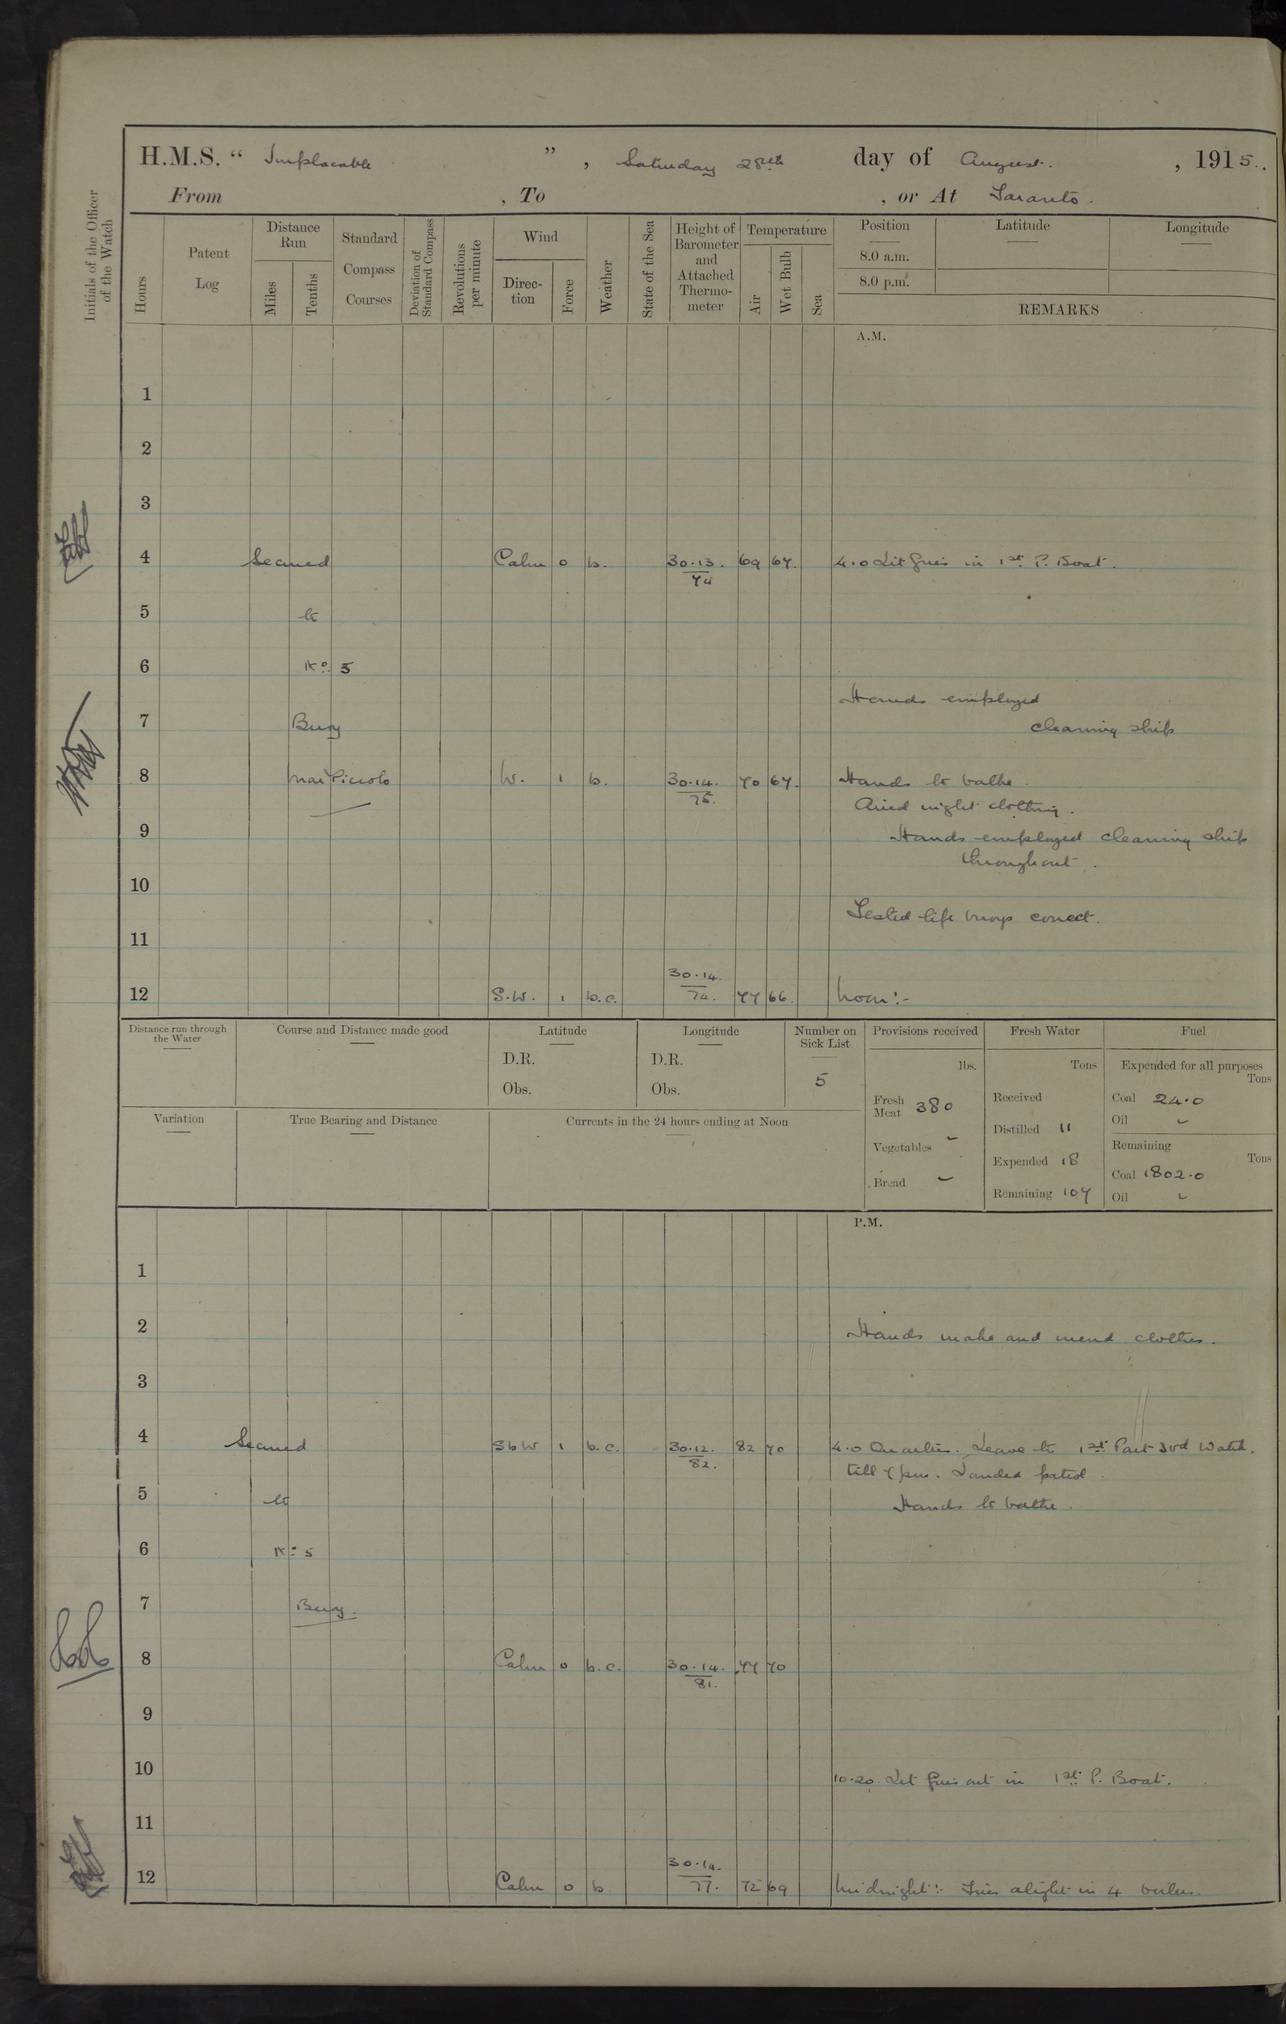 H.M.S. “ Implacable ” , Saturday 28th day of August. , 1915.
From , To , or At Taranto.
Initials of the Officer of the Watch
Hours
Patent Log
Distance Run
Miles
Tenths
Standard Compass Courses
Deviation of Standard Compass
Revolutions per minute
Wind
Direction
Force
Weather
State of the Sea
Height of Barometer and Attached Thermometer
Temperature
Air
Wet Bulb
Sea
Position
8.0 a.m.
8.0 p.m.
Latitude
Longitude
REMARKS
A.M.
1
2
3
4 Secured Calm 0 b. 30.13. 74 69 67. 4.0 Lit fires in 1st P. Boat.
5 to
6 No. 5
Hands employed
7 Buoy cleaning ship
8 Mar Piccolo W. 1 b. 30.14. 75. 70 67. Hands to bathe.
Aired night clothing.
9 Hands employed cleaning ship
throughout.
10
Tested life buoys correct.
11
12 S.W. 1 b.c. 30.14. 74. 77 66. Noon:-
Distance run through the Water
Course and Distance made good
Latitude
D.R.
Obs.
Longitude
D.R.
Obs.
Number on Sick List
5
Provisions received
lbs.
Fresh Meat 380
Vegetables -
Bread -
Fresh Water
Tons
Received
Distilled 11
Expended 18
Remaining 107
Fuel
Expended for all purposes
Tons
Coal 24.0
Oil -
Remaining
Tons
Coal 1802.0
Oil -
Variation
True Bearing and Distance
Currents in the 24 hours ending at Noon
P.M.
1
2 Hands make and mend clothes.
3
4 Secured SbW 1 b.c. 30.12. 82. 82 70 4.0 Quarters. Leave to 1st Part 3rd Watch.
till 7 pm. Landed patrol.
5 to Hands to bathe.
6 No. 5
7 Buoy.
8 Calm 0 b.c. 30.14. 81. 77 70
9
10 10.20. Let fires out in 1st P. Boat.
11
12 Calm 0 b 30.14. 77. 72 69 Midnight:- Fires alight in 4 boilers.